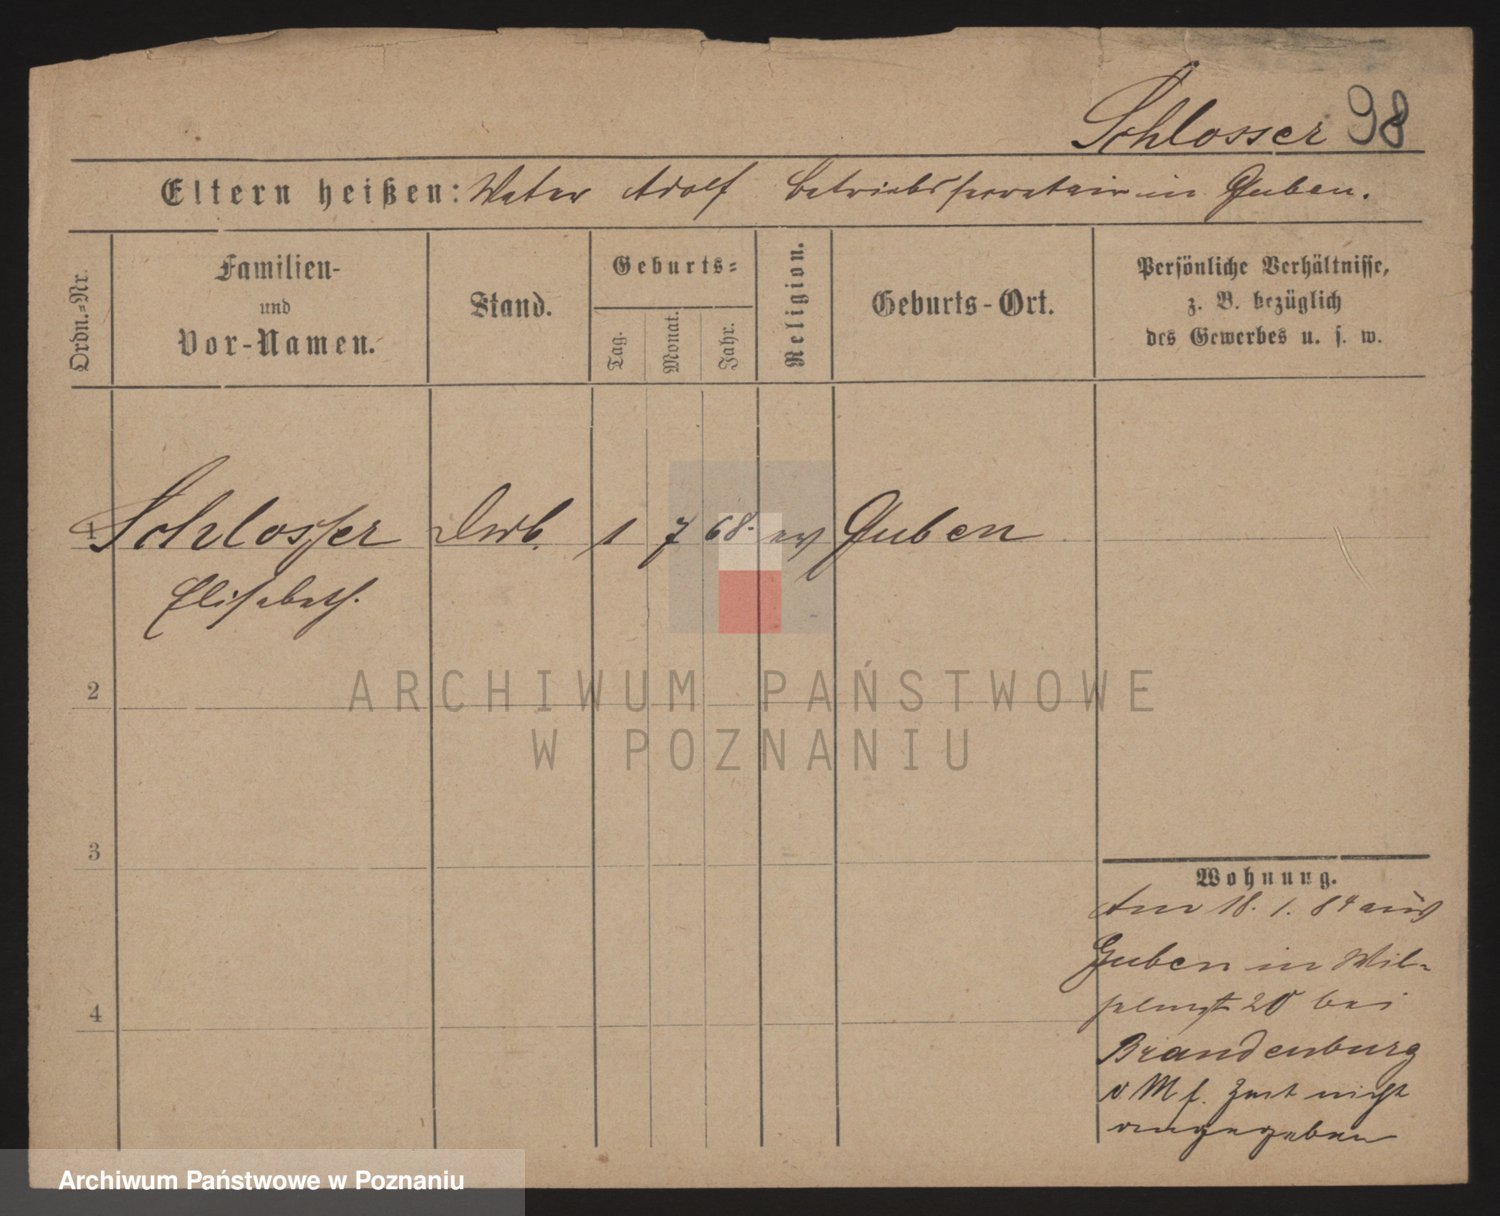 Schlosser 98
Eltern heißen: Vater Adolf Betriebssecretair in Guben.
Ordn.-Nr.
Familien-
und
Vor-Namen.
Stand.
Geburts-
Tag.
Monat.
Jahr.
Religion.
Geburts-Ort.
Persönliche Verhältnisse,
z. B. bezüglich
des Gewerbes u. s. w.
1 Schlosser 1 7 68. ev Guben
Elisabeth.
2
ARCHIWUM PAŃSTWOWE
W POZNANIU
3
4
Wohnung.
Am 18. 1. 84 aus
Guben in Wil-
20 bei
Brandenburg
v M f. Zeit nicht
angegeben
Archiwum Państwowe w Poznaniu